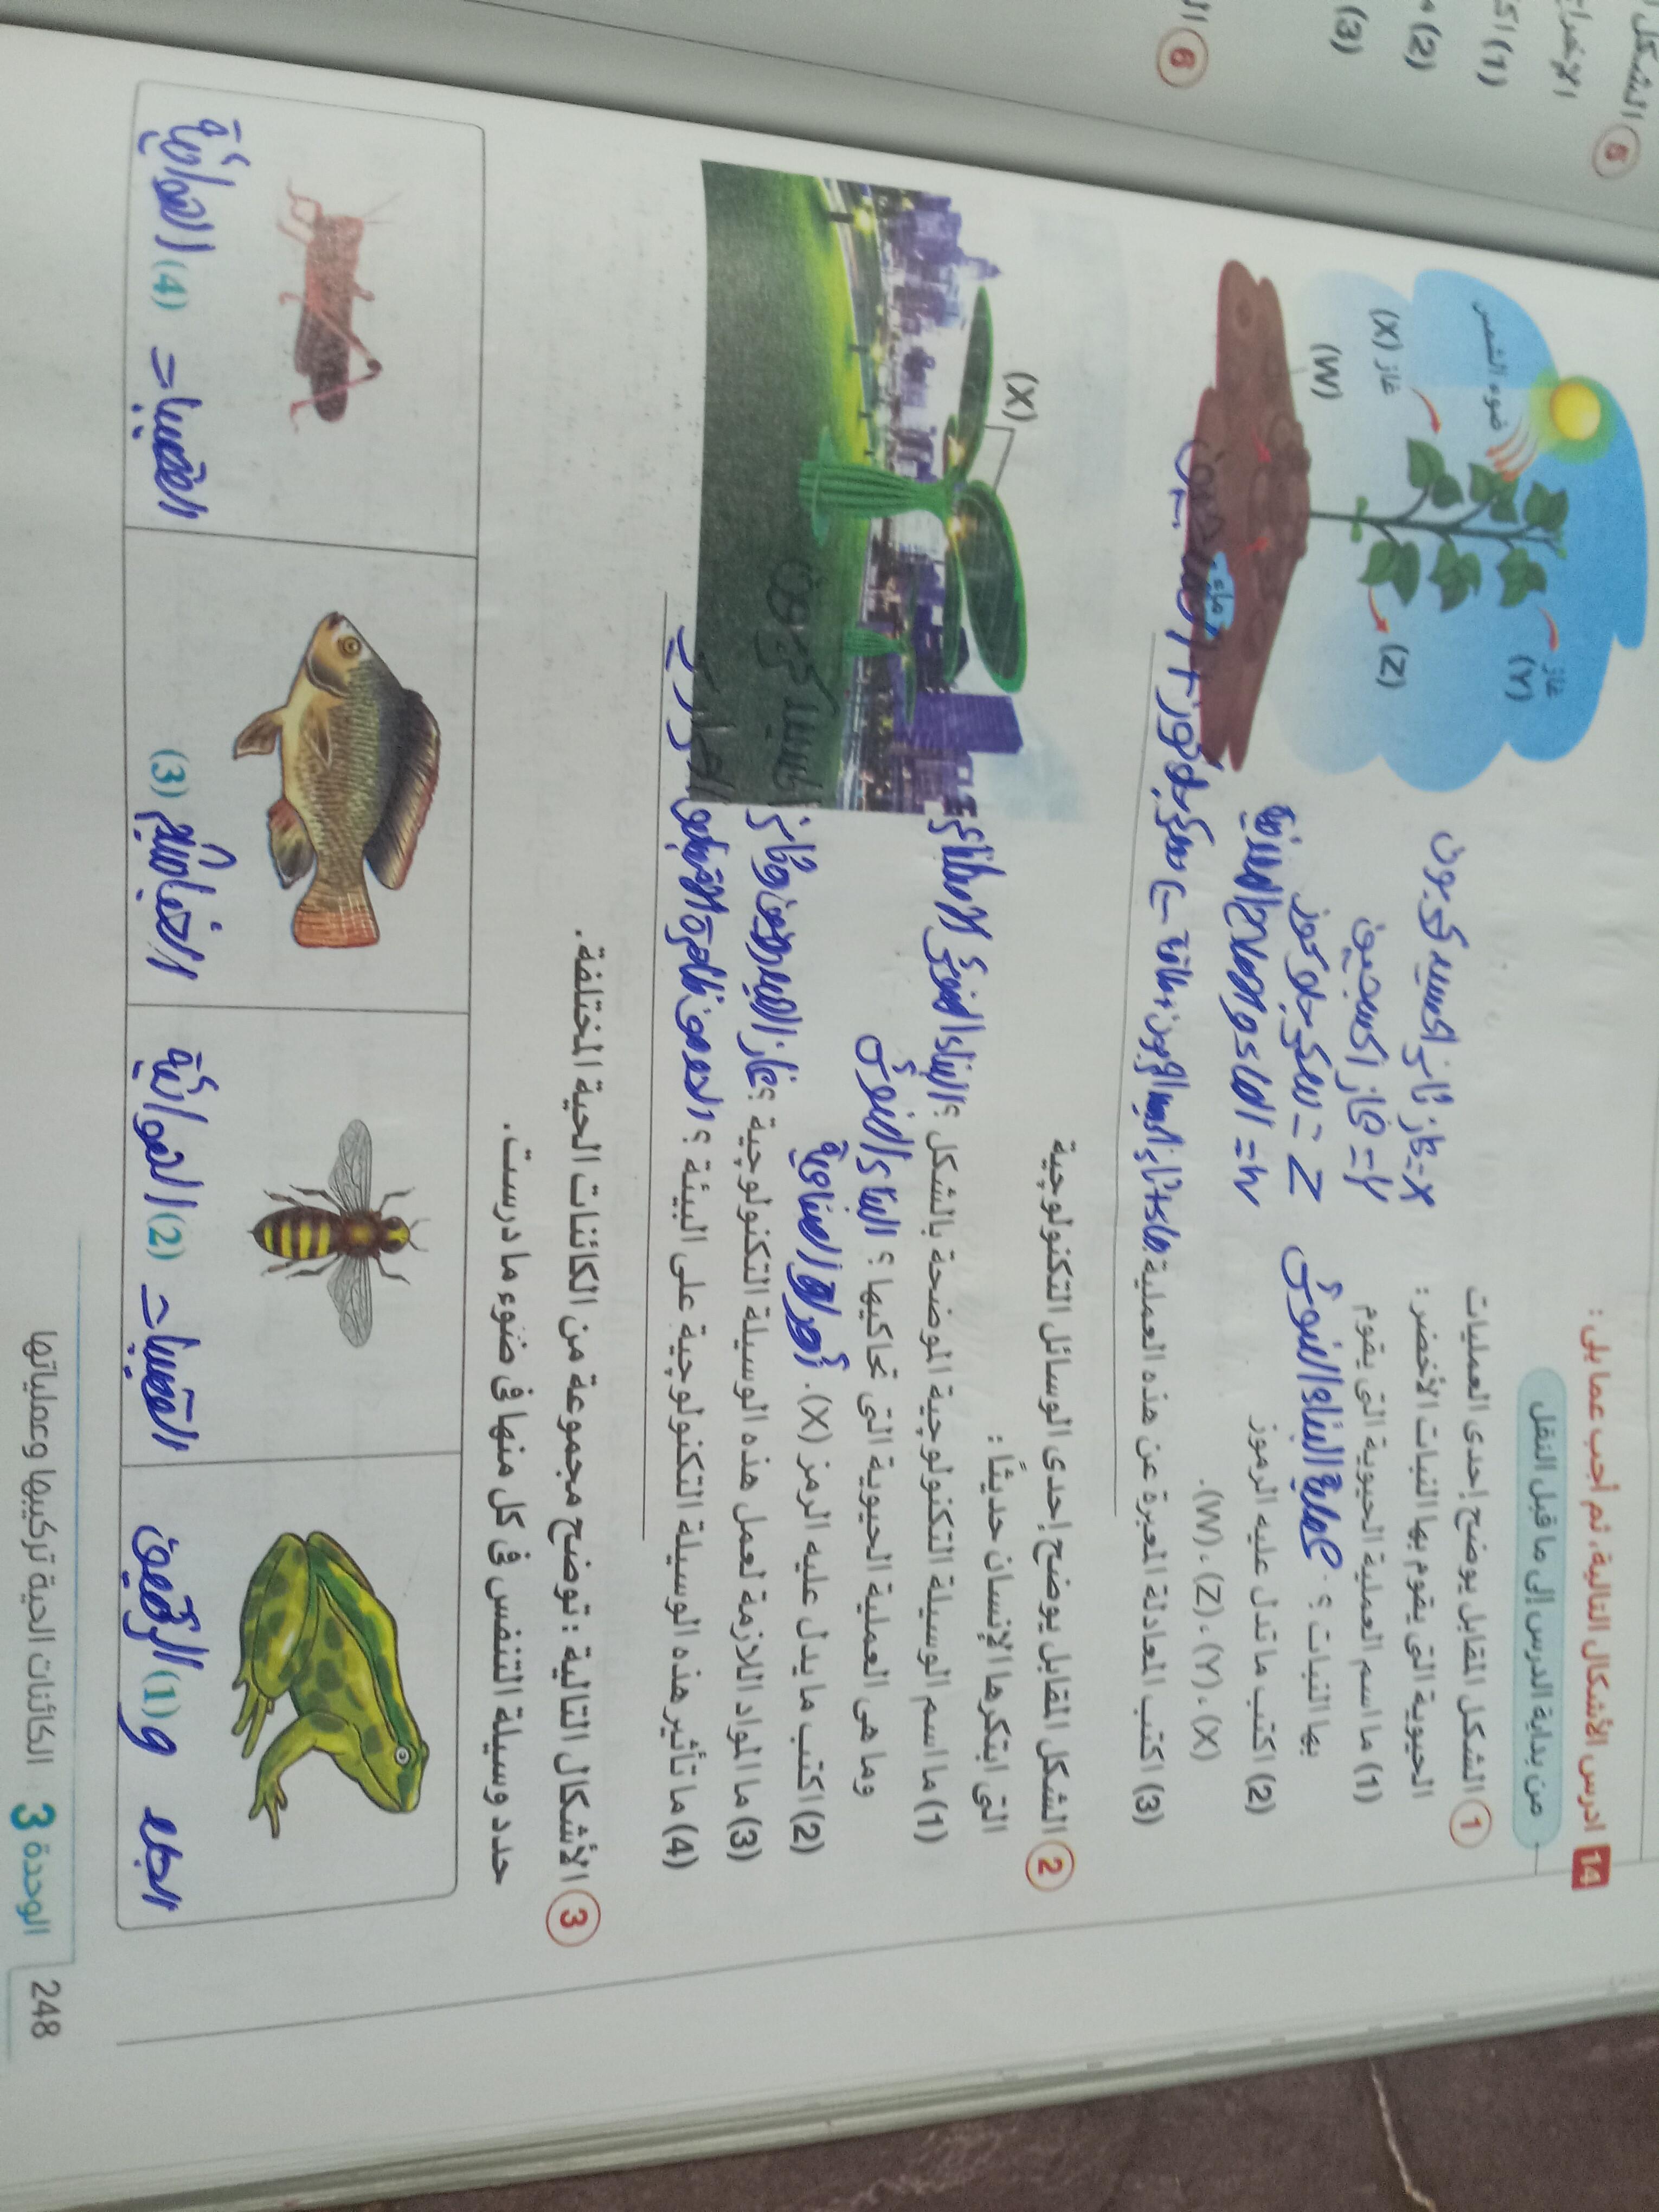 14 ادرس الأشكال التالية، ثم أجب عما يلى :
من بداية الدرس إلى ما قبل النقل
1 الشكل المقابل يوضح إحدى العمليات
الحيوية التى يقوم بها النبات الأخضر :
(1) ما اسم العملية الحيوية التى يقوم
بها النبات ؟ عملية البناء الضوئى
(2) اكتب ما تدل عليه الرموز
(X) ، (Y) ، (Z) ، (W).
x = غاز ثانى اكسيد كربون
y = غاز اكسجين
Z = سكر جلوكوز
w = الماء والاملاح المعدنية
(3) اكتب المعادلة المعبرة عن هذه العملية ماء + ثانى اكسيد الكربون + طاقة → سكر جلوكوز + اكسجين
ضوء الشمس
غاز (X)
غاز (Y)
(Z)
(W)
ماء
2 الشكل المقابل يوضح إحدى الوسائل التكنولوجية
التى ابتكرها الإنسان حديثًا :
(1) ما اسم الوسيلة التكنولوجية الموضحة بالشكل ؟ البناء الضوئى الاصطناعى
وما هى العملية الحيوية التى تحاكيها ؟ البناء الضوئى
(2) اكتب ما يدل عليه الرمز (X). أوراق صناعية
(3) ما المواد اللازمة لعمل هذه الوسيلة التكنولوجية ؟ غاز الهيدروجين وثانى اكسيد كربون
(4) ما تأثير هذه الوسيلة التكنولوجية على البيئة ؟ الحد من ظاهرة الاحتباس الحرارى
(X)
3 الأشكال التالية : توضح مجموعة من الكائنات الحية المختلفة.
حدد وسيلة التنفس فى كل منها فى ضوء ما درست.
(1) الجلد و الرئتين
(2) القصيبات الهوائية
(3) الخياشيم
(4) القصيبات الهوائية
248 الوحدة 3 الكائنات الحية تركيبها وعملياتها
5 الشكل
الإخراج
(1) اكـ
(2)
(3)
6